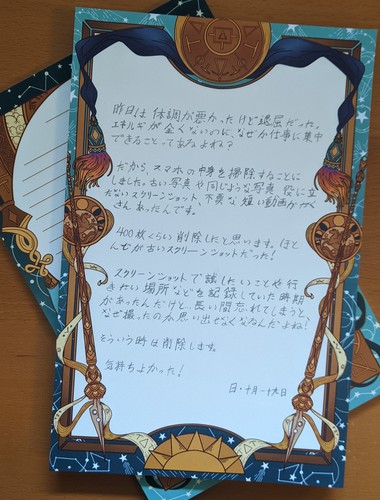 昨日は体調が悪かったけど退屈だった。
エネルギが全くないのに、なぜか仕事に集中
できることってあるよね？
だから、スマホの中身を掃除することに
しました。古い写真や同じような写真、役に立
たないスクリーンショット、不要な短い動画がたく
さんあったんです。
400枚くらい削除したと思います。ほと
んどが古いスクリーンショットだった！
スクリーンショットで試したいことや行
きたい場所などを記録していた時期
があったんだけど…長い間忘れてしまうと、
なぜ撮ったのか思い出せなくなるんだよね！
そういう時は削除します。
気持ちよかった！
日・十月一十六日